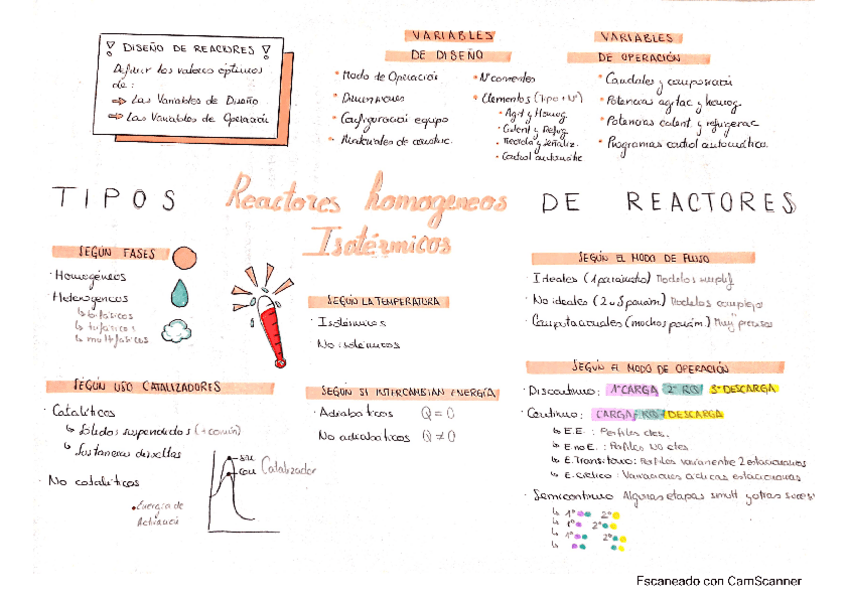 ¡ DISEÑO DE REACTORES !
Definir los valores óptimos
de:
⇒ Las Variables de Diseño
⇒ Las Variables de Operación
VARIABLES
DE DISEÑO
• Modo de Operación
• Dimensiones
• Configuración equipo
• Materiales de construc.
• Nº corrientes
• Elementos (Tipo + Nº)
• Agit y Homog.
• Calent y Refrig.
• Medida y señaliz.
• Control automátic
VARIABLES
DE OPERACIÓN
• Caudales y composición
• Potencias agitac y homog.
• Potencias calent. y refrigerac
• Programas control automático.
TIPOS DE REACTORES
Reactores homogeneos
Isotérmicos
SEGÚN FASES
· Homogéneos
Heterogeneos
↳ bifásicos
↳ trifásicos
↳ multifásicos
SEGÚN LA TEMPERATURA
· Isotérmicos
No isotérmicos
SEGÚN EL MODO DE FLUJO
· Ideales (1 parámetro) Modelos simplif
· No ideales (2 o 3 parám) Modelos complejos
· Computacionales (muchos parám.) Muy precisos
SEGÚN USO CATALIZADORES
· Catalíticos
↳ Sólidos suspendidos (+ común)
↳ Sustancias disueltas
· No catalíticos
• Energía de
Activación
sin
con Catalizador
SEGÚN SI INTERCAMBIAN ENERGÍA
· Adiabáticos Q = 0
No adiabáticos Q ≠ 0
SEGÚN EL MODO DE OPERACIÓN
· Discontinuo: 1º CARGA 2º RQ 3º DESCARGA
· Continuo: CARGA + RQ + DESCARGA
↳ E.E. : Perfiles ctes.
↳ E no E. : Perfiles No ctes
↳ E. Transitorio: Perfiles varían entre 2 estacionarios
↳ E. cíclico: Variaciones cíclicas estacionarias
· Semicontinuo Algunas etapas simult y otras suces
↳ 1º 2º
↳ 1º 2º
↳ 1º 2º
↳
Escaneado con CamScanner